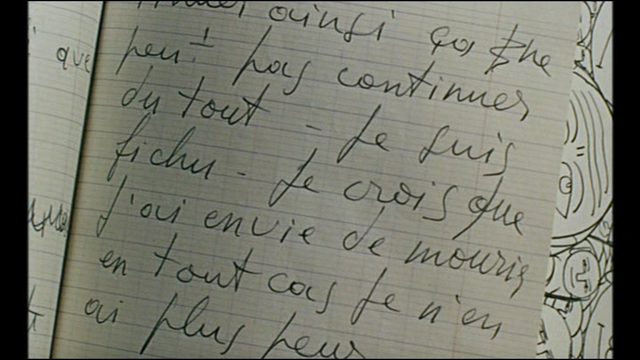 ainsi ça ne
que
peut pas continuer
du tout - Je suis
fichu - Je crois que
j'ai envie de mourir
en tout cas Je n'en
ai plus peur